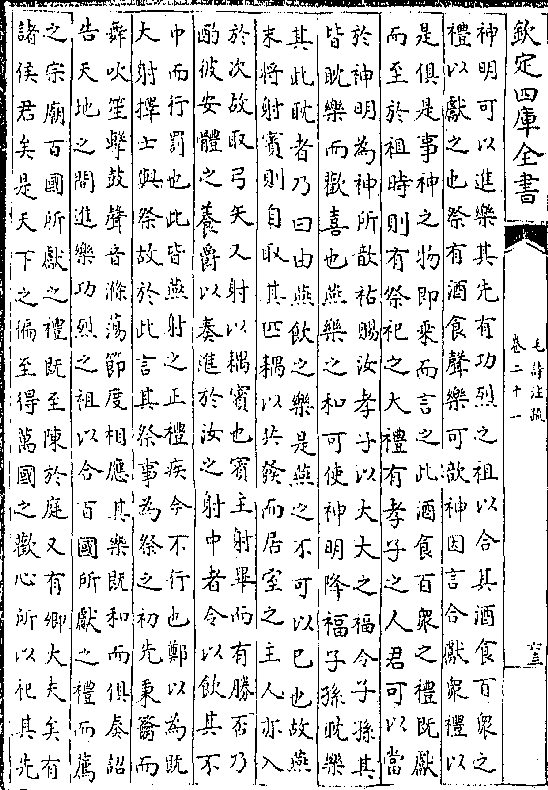 欽定四庫全書
毛詩注疏
卷二十一
神明可以進樂其先有功烈之祖以合其酒食百衆之
禮以獻之也祭有酒食聲樂可歆神因言合獻衆禮以
是俱是事神之物即乘而言之此酒食百衆之禮既獻
而至於祖時則有祭祀之大禮有孝子之人君可以當
於神明為神所歆祐賜汝孝子以大大之福令子孫其
皆耽樂而歡喜也燕樂之和可使神明降福子孫耽樂
其此耽者乃曰由燕飲之樂是燕之不可以已也故燕
末將射賓則自取其匹耦以共發而居室之主人亦入
於次故取弓矢又射以耦賓也賓主射畢而有勝否乃
酌彼安體之養爵以奏進於汝之射中者令以飲其不
中而行罰也此皆燕射之正禮疾今不行也鄭以為既
大射擇士與祭故於此言其祭事為祭之初先秉籥而
舞吹笙擊鼓聲音滌蕩節度相應其樂既和而俱奏詔
告天地之間進樂功烈之祖以合百國所獻之禮而薦
之宗廟百國所獻之禮既至陳於庭又有卿大夫矣有
諸侯君矣是天下之徧至得萬國之歡心所以祀其先